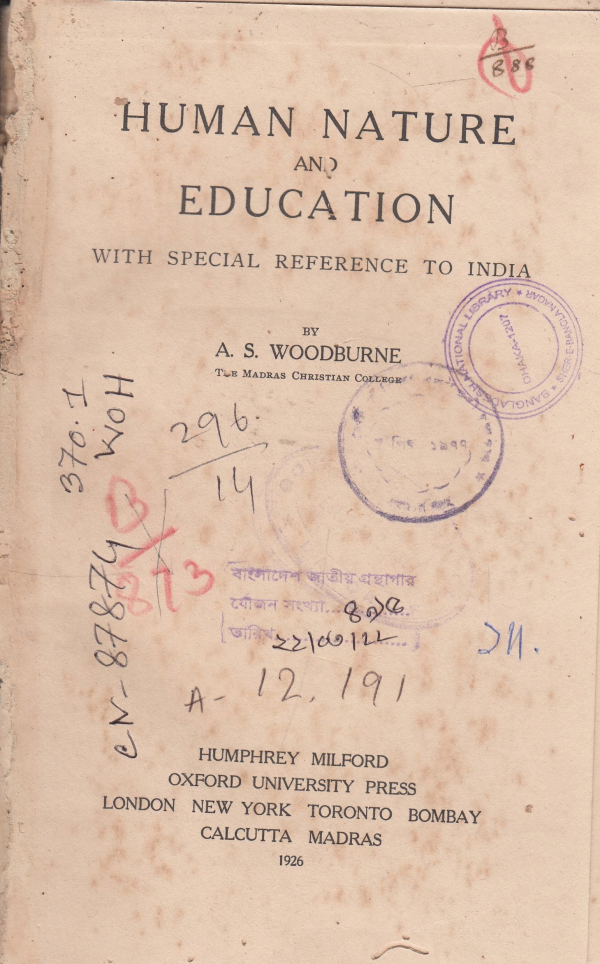 B
888
HUMAN NATURE
AND
EDUCATION
WITH SPECIAL REFERENCE TO INDIA
BANGLADESH NATIONAL LIBRARY * SHER-E-BANGLA NAGAR
DHAKA-1207
BY
A. S. WOODBURNE
THE MADRAS CHRISTIAN COLLEGE
370.1
WOH
296.
14
১৯৭৭
B
873
CN-87874
বাংলাদেশ জাতীয় গ্রন্থাগার
যৌজন সংখ্যা
তারিখ
A-12,191
HUMPHREY MILFORD
OXFORD UNIVERSITY PRESS
LONDON NEW YORK TORONTO BOMBAY
CALCUTTA MADRAS
1926